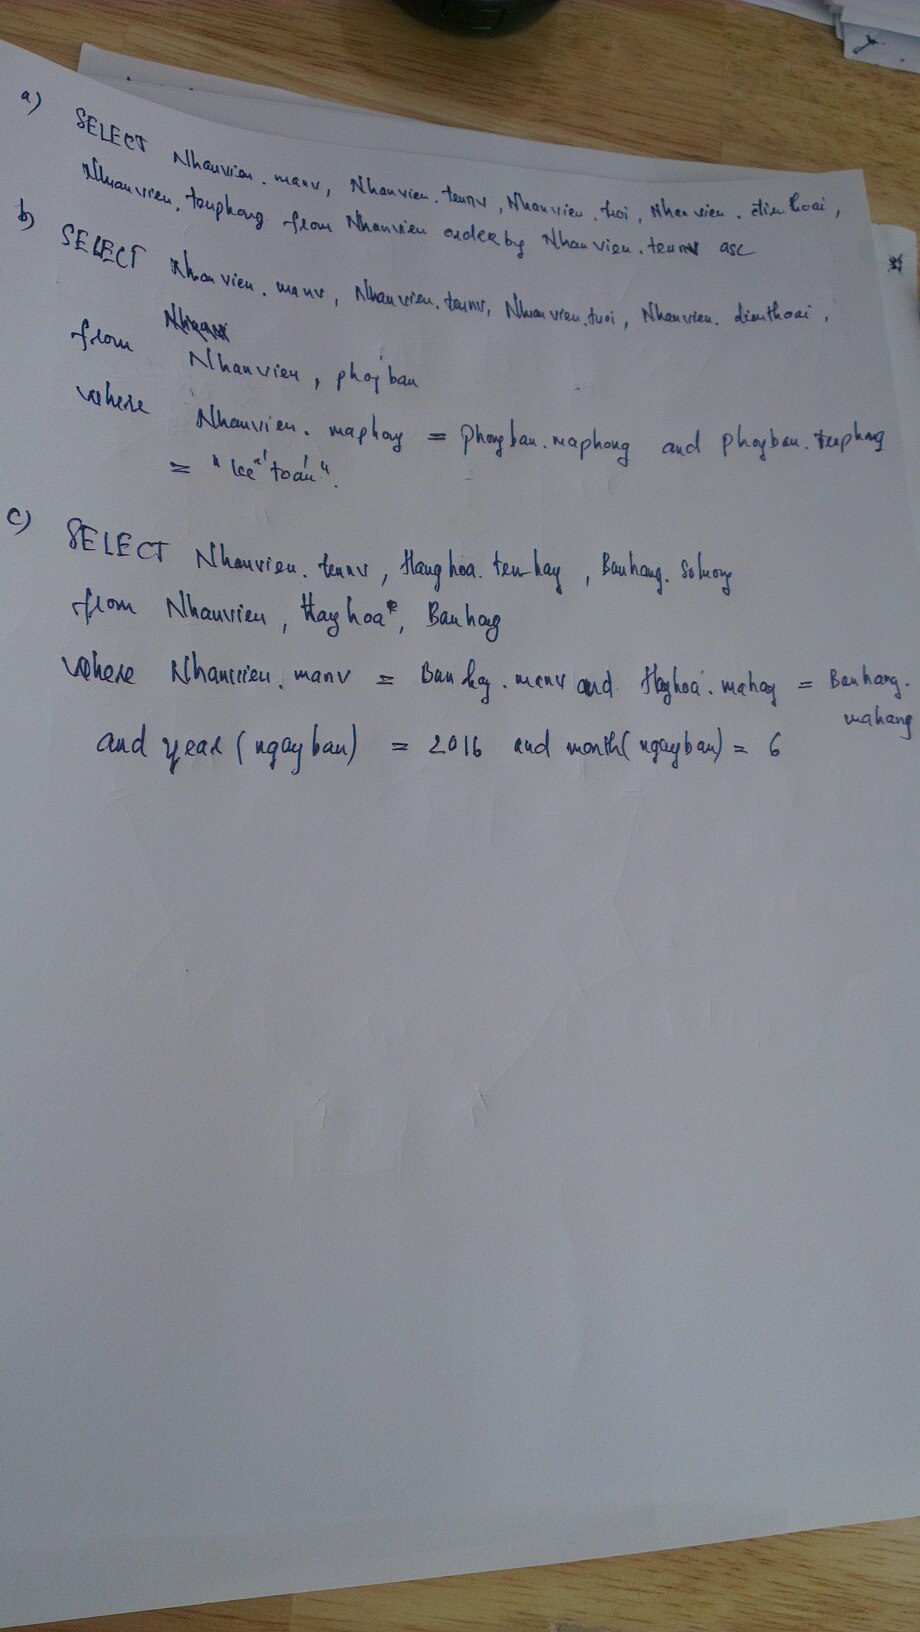 a) SELECT Nhanvien.manv, Nhanvien.tennv, Nhanvien.tuoi, Nhanvien.dienthoai,
Nhanvien.tenphong from Nhanvien order by Nhanvien.tennv asc
b) SELECT Nhanvien.manv, Nhanvien.tennv, Nhanvien.tuoi, Nhanvien.dienthoai,
from Nhanvien, phogban
where Nhanvien.maphog = phongban.maphong and phogban.tenphog
= "kế toán".
c) SELECT Nhanvien.tennv, Hanghoa.tenhag, Banhang.soluong
from Nhanvien, Haghoa, Banhag
where Nhanvien.manv = Banhag.manv and Haghoa.mahag = Banhang.
mahang
and year(ngayban) = 2016 and month(ngayban) = 6